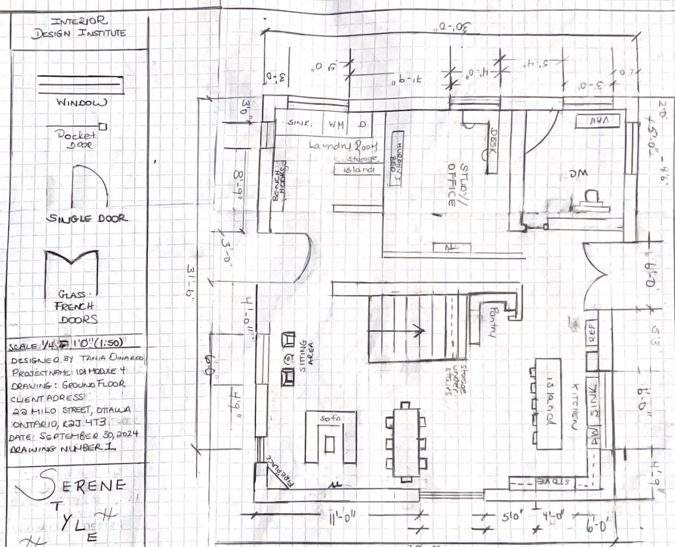 INTERIOR
DESIGN INSTITUTE
WINDOW
Pocket
DOOR
SINGLE DOOR
GLASS
FRENCH
DOORS
SCALE: 1/4" = 1'0" (1:50)
DESIGNED BY TANIA
PROJECT NAME: IDI MODULE 4
DRAWING: GROUND FLOOR
CLIENT ADRESS
22 MILO STREET, OTTAWA
ONTARIO, K2J 4T3
DATE: SEPTEMBER 30, 2024
DRAWING NUMBER 1
SERENE
TYLE
30'-0"
3'-0"
5'-0"
7'-9"
4'-0"
5'-4"
3'-0"
2'-0"
SINK
WM D
Laundry Room
storage
island
BENCH
HOOKS
MURPHY
BED
STUDY/
OFFICE
DESK
TV
VAN
WC
3'-0"
8'-9"
3'-0"
31'-6"
4'-0"
6'0"
4'9"
5'-0"
4'6"
6'-0"
6'-0"
4'-9"
Pantry
storage
under
stairs
SITTING
AREA
Sofa
FIREPLACE
island
KITCHEN
REF
SINK
STOVE
11'-0"
5'0"
4'-0"
6'-0"